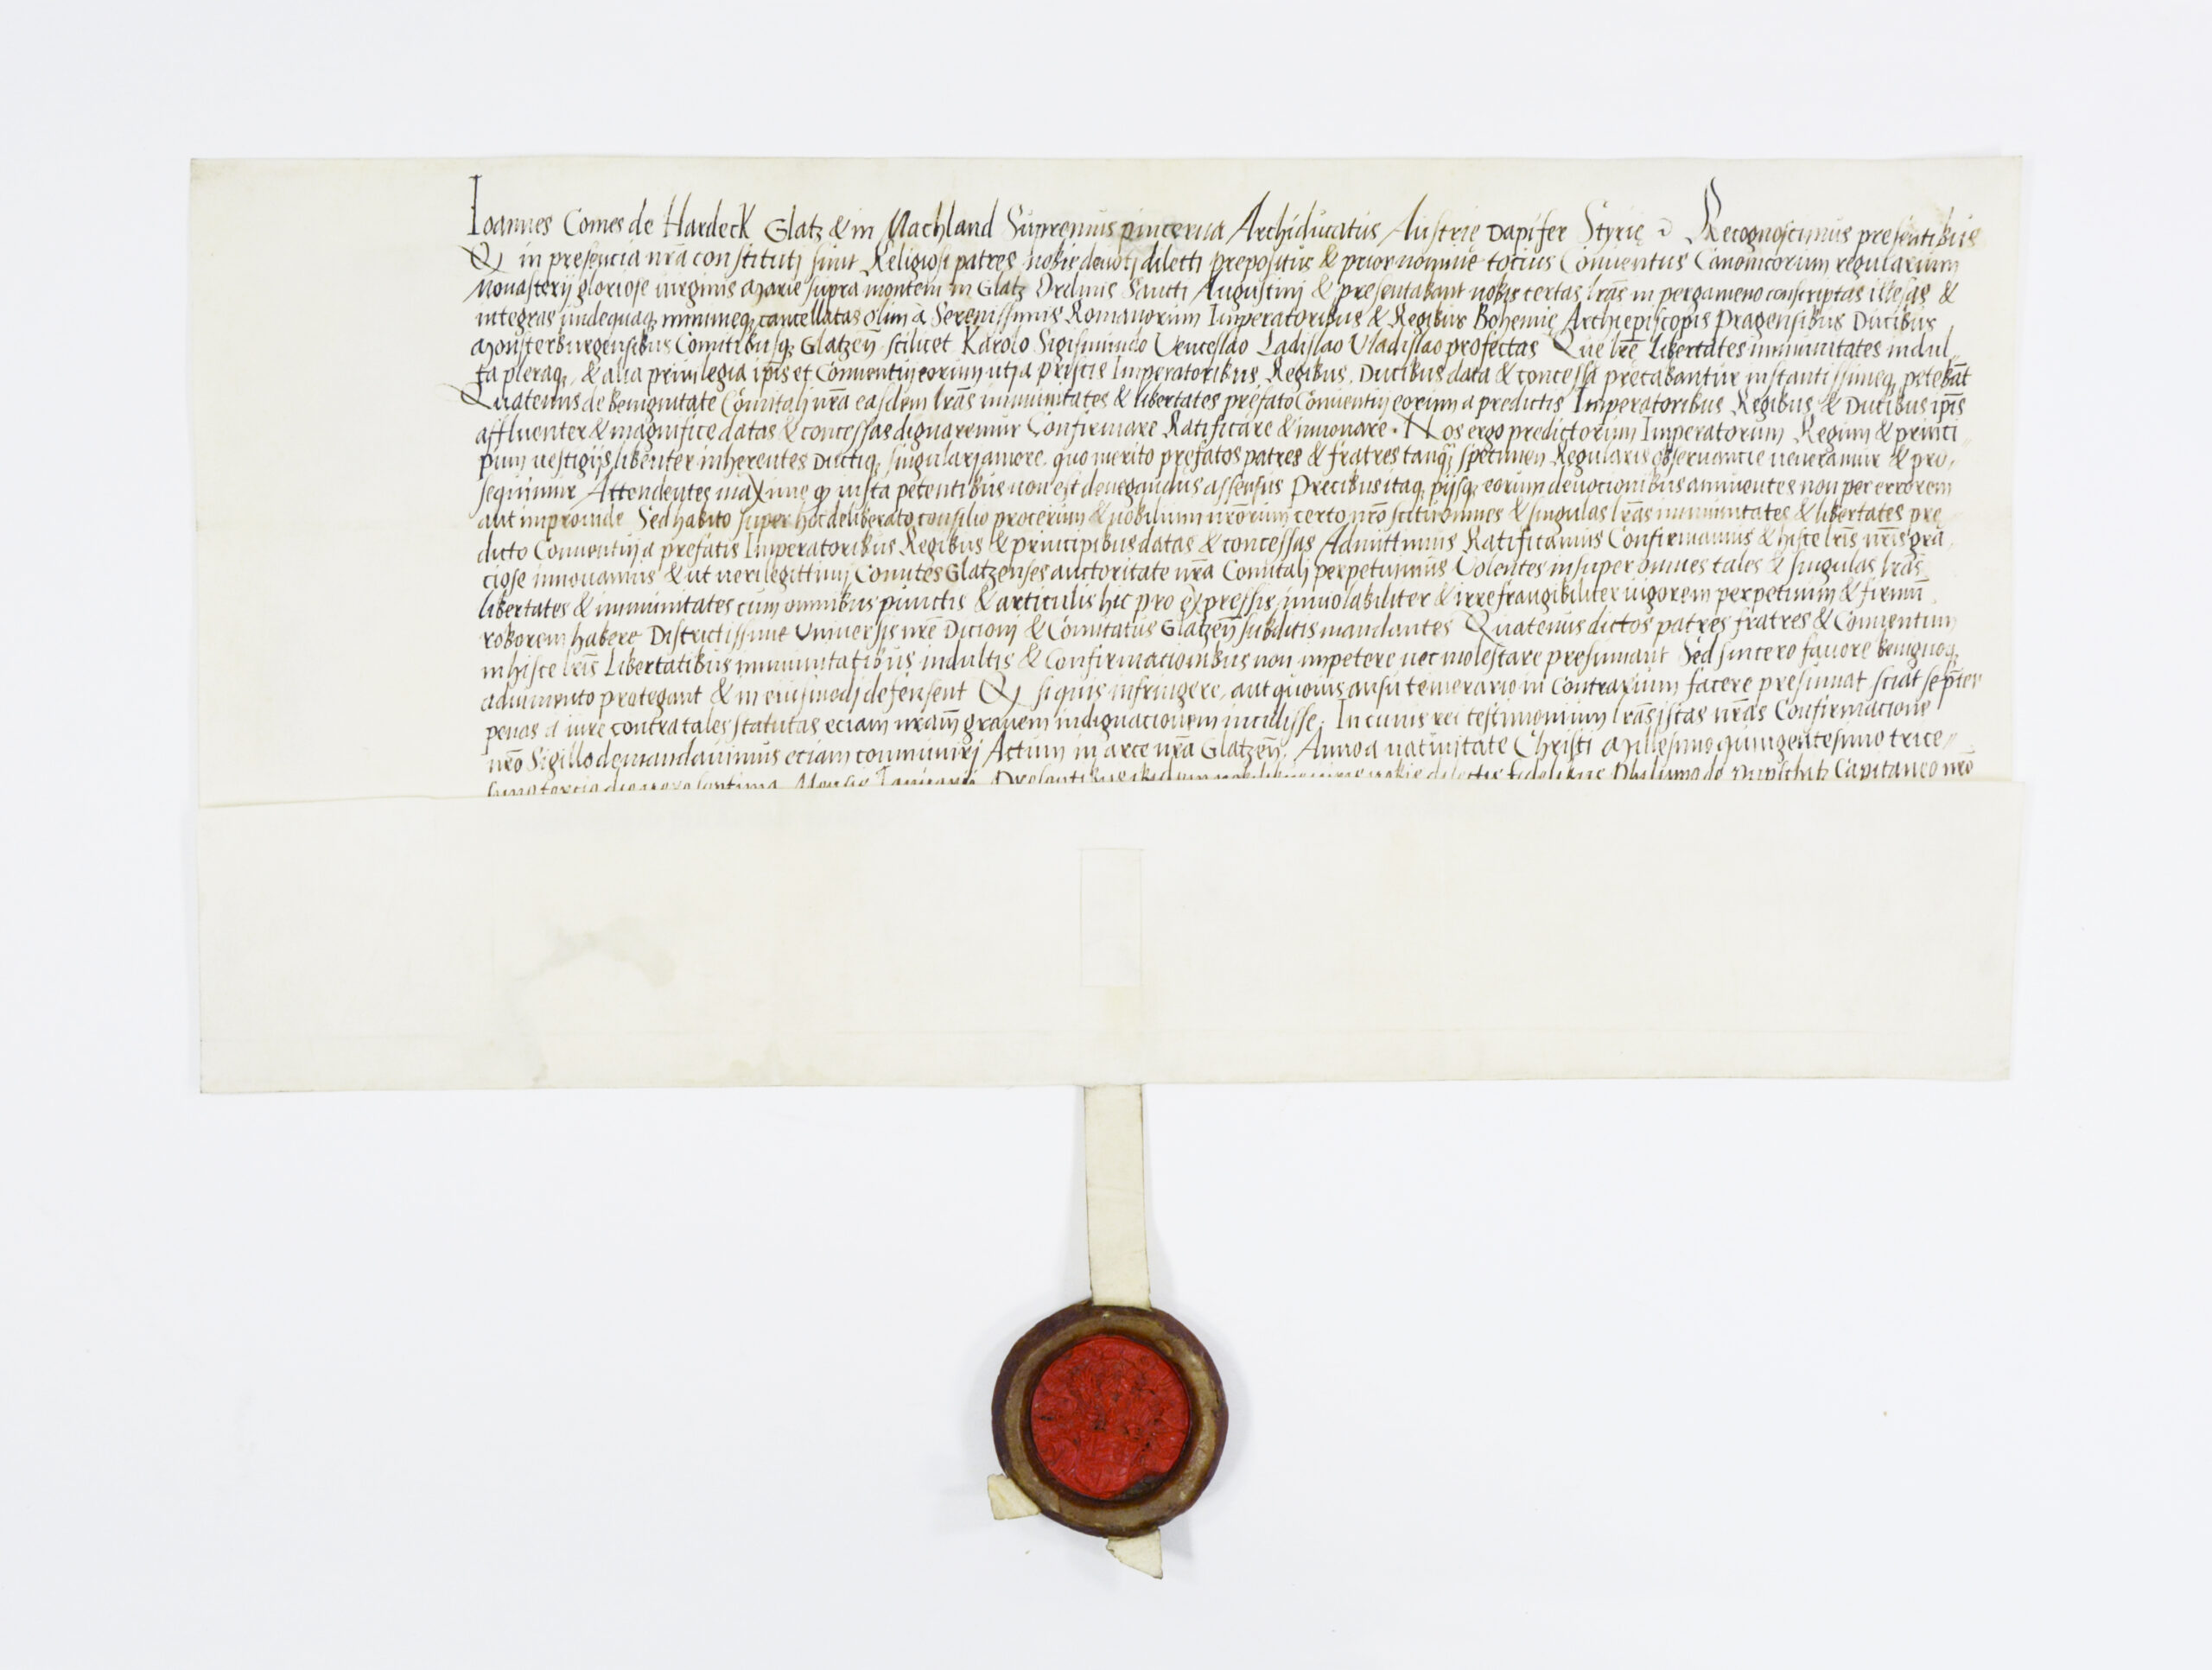 Ioannes Comes de Hardeck Glatz & in Machland Supremus pincerna Archiducatus Austrię Dapifer Styrię Recognoscimus presentibus
Q in presencia nr̄a constituti sunt Religiosi patres nobis deuoti dilecti prepositus & prior nomine tocius Conuentus Canonicorum regularium
Monasterij gloriose uirginis Marie supra montem in Glatz Ordinis Sancti Augustinj & presentabant nobis certas lr̄as in pergameno conscriptas illesas &
integras undequaq; minimeq; cancellatas olim a Serenissimis Romanorum Imperatoribus & Regibus Bohemię Archiepiscopis Pragensibus Ducibus
Monsterburgensibus Comitibusq; Glatzen̄ scilicet Karolo Sigismundo Venceslao Ladislao Vladislao profectas Que lr̄e Libertates immunitates indul„
ta pleraq; & alia priuilegia ip̄is et Conuentuj eorum utj a priscis Imperatoribus Regibus. Ducibus data & concessa precabantur instantissimeq; petebāt
Quatenus de benignitate Comitalj nr̄a easdem lr̄as immunitates & libertates prefato Conuentuj eorum a predictis Imperatoribus Regibus & Ducibus ip̄is
affluenter & magnifice datas & concessas dignaremur Confirmare Ratificare & innouare. Nos ergo predictorum Imperatorum Regum & princi„
pum uestigijs libenter inherentes Ductiq; singularj amore. quo merito prefatos patres & fratres tanq̄ specimen Regularis obseruancie ueneramur & pro„
sequimur Attendentes maxime q iusta petentibus non est denegandus assensus Precibus itaq; pijsq; eorum deuocionibus annuentes non per errorem
aut improuide Sed habito super hoc deliberato consilio procerum & nobilium nr̄orum certo nr̄o scitu omnes & singulas lr̄as immunitates & libertates pre„
dicto Conuentuj a prefatis Imperatoribus Regibus & principibus datas & concessas Admittimus Ratificamus Confirmamus & hisce lr̄is nr̄is gra„
ciose innouamus & utueri legittimj Comites Glatzenses auctoritate nr̄a Comitalj perpetuimus Volentes insuper omnes tales & singulas lr̄as
libertates & immunitates cum omnibus punctis & articulis hic pro expressis inuiolabiliter & irrefrangibiliter uigorem perpetuum & firmū
roborem habere Districtissime Uniuersis nr̄e Dicionj & Comitatus Glatzen̄ subditis mandantes Quatenus dictos patres fratres & Conuentum
in hisce lr̄is Libertatibus immunitatibus indultis & Confirmacionibus non impetere nec molestare presumant Sed sincero fauore benignoq;
adiumento protegant & in eiusmodj defensent Q si quis infringere, aut quouis ausu temerario in contrarium facere presumat sciat se p̄ter
penas a iure contra tales statutas eciam nr̄am grauem indignacionem incidisse. In cuius rei testimonium lr̄as istas nr̄as Confirmacione
nr̄o Sigillo demandauimus eciam communirj Actum in arce nr̄a Glatzen̄. Anno a natiuitate Christi Millesimo quingentesimo trice„
simo tercio die uero septima Mensis Ianuarij Presentibus ibidem nobilibus uiris nobis dilectis fidelibus Capitaneo nr̄o